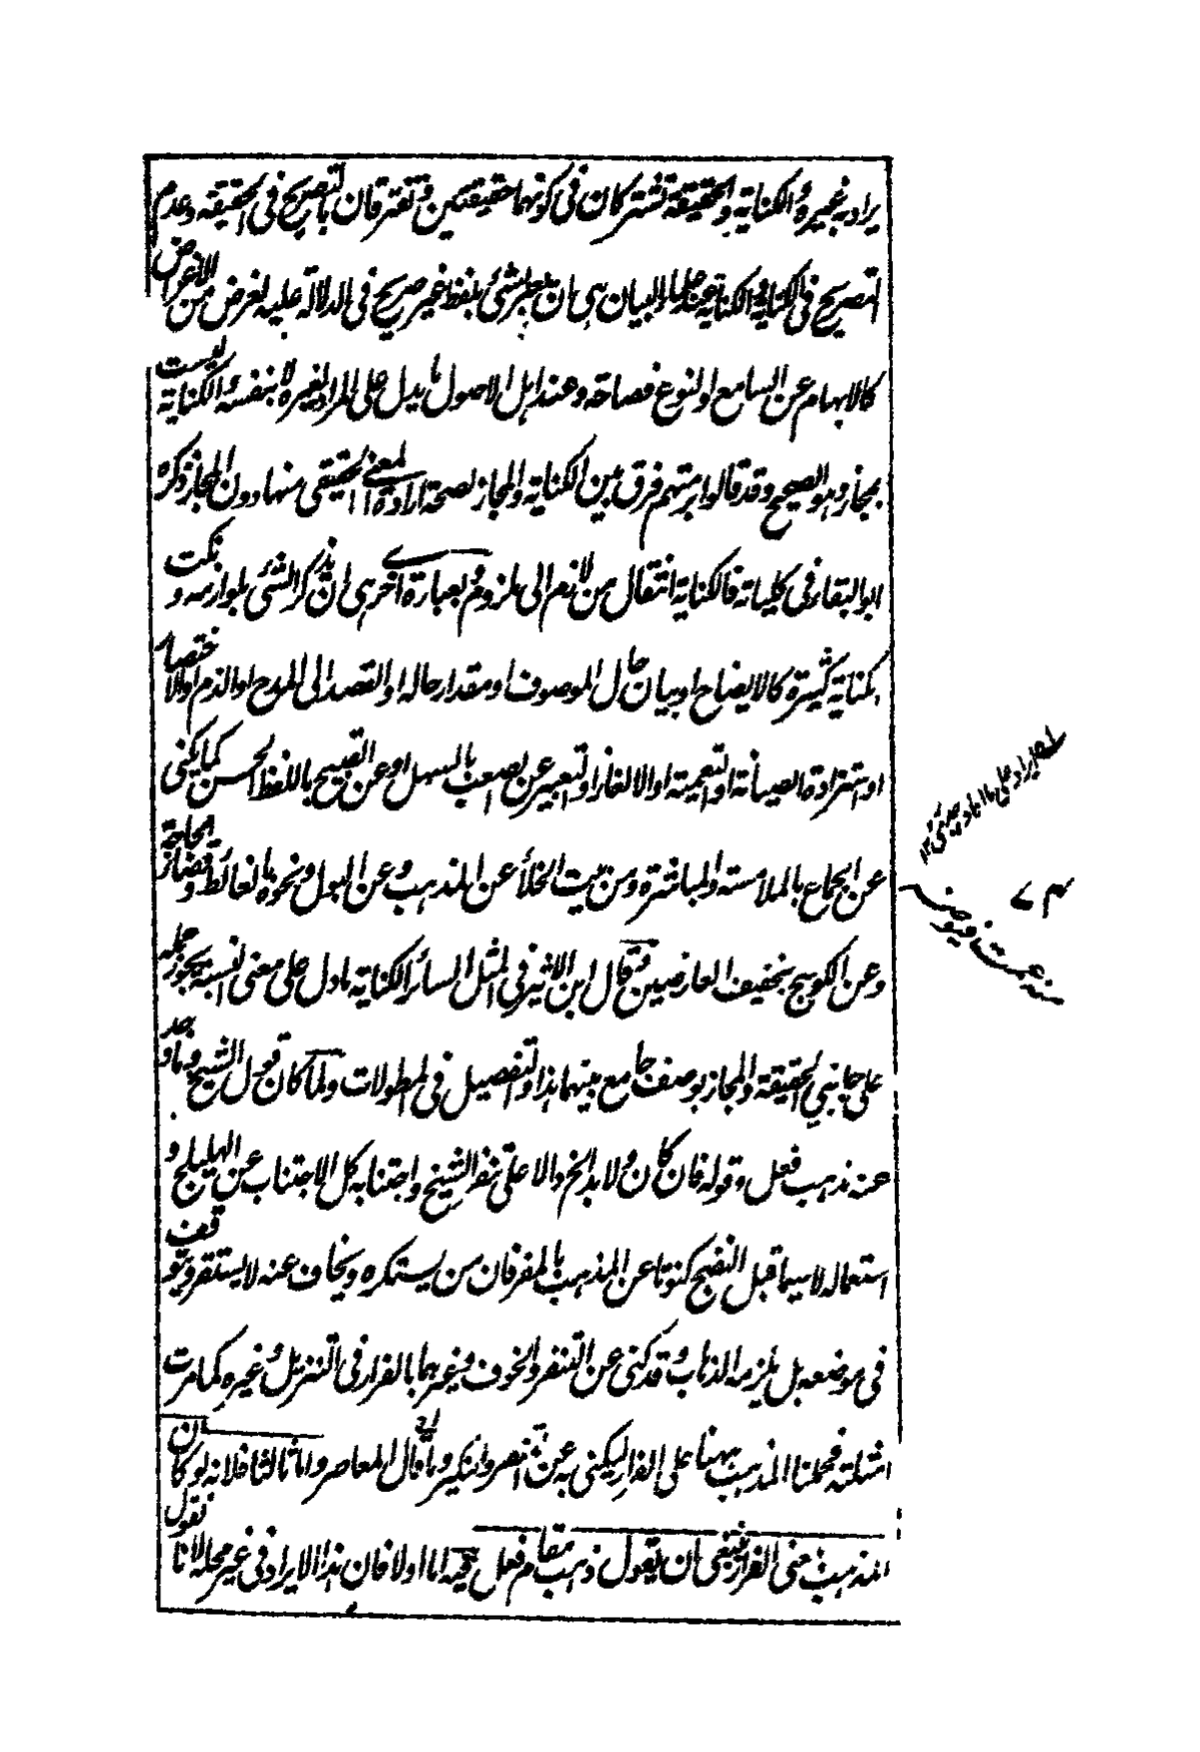 يراد به غيره والكناية والحقيقة تشتركان فى كونهما حقيقتين وتفترقان بالتصريح فى الحقيقة وعدم
التصريح فى الكناية والكناية عند علماء البيان هى ان يعبر الشئ بلفظ غير صريح فى الدلالة عليه لغرض من الاغراض
كالابهام عن السامع او لنوع فصاحة وعند اهل الاصول ما يدل على المراد بغيره لا بنفسه والكناية ليست
بمجاز وهو الصحيح وقد قالوا برمتهم فرق بين الكناية والمجاز لصحة ارادة المعنى الحقيقى منها دون المجاز ذكره
ابو البقاء فى كلياته فالكناية انتقال من لازم الى ملزوم وبعبارة اخرى هى ان تذكر الشئ بلوازمه و نكت
الكناية كثيرة كالايضاح او بيان حال الموصوف او مقدار حاله او القصد الى المدح او الذم او الاختصار
او استزادة الصيانة او التعمية او الالغاز او التعبير عن الصعب بالسهل او عن القبيح باللفظ الحسن كما يكنى
عن الجماع بالملامسة والمباشرة ومن بيت الخلأ عن المذهب وعن البول ونحوه بالغائط وقضاء الحاجة
وعن الكوسج بخفيف العارضين وقال ابن الاثير فى المثل السائر الكناية ما دل على معنى النسبة يجوز حمله
على جانبى الحقيقة والمجاز بوصف جامع بينهما هذا والتفصيل فى المطولات ولما كان قول الشيخ وما بعد
عنه ذهب فعل وقوله فان كان ولا بد الخ دالا على تنفر الشيخ واجتنابه كل الاجتناب عن الهليلج و
استعماله لا سيما قبل النضج كنونا عن المذهب بالمفر فان من يستكره ويخاف عنه لا يستقر ويقف
فى موضعه بل يلزمه الذهاب وقد كنى عن التنفر والخوف وغيرهما بالفرار فى التنزيل وغيره كما مرت
امثلته فحملنا المذهب ههنا على الفرار ليكنى به عن التنفر وما قال المعاصر واما ثالثا فلانه لو كان
المذهب بمعنى الفرار ينبغى ان يقول ذهب مقام فعل ففيه اما اولا فان هذا الايراد فى غير محله لانا نقول